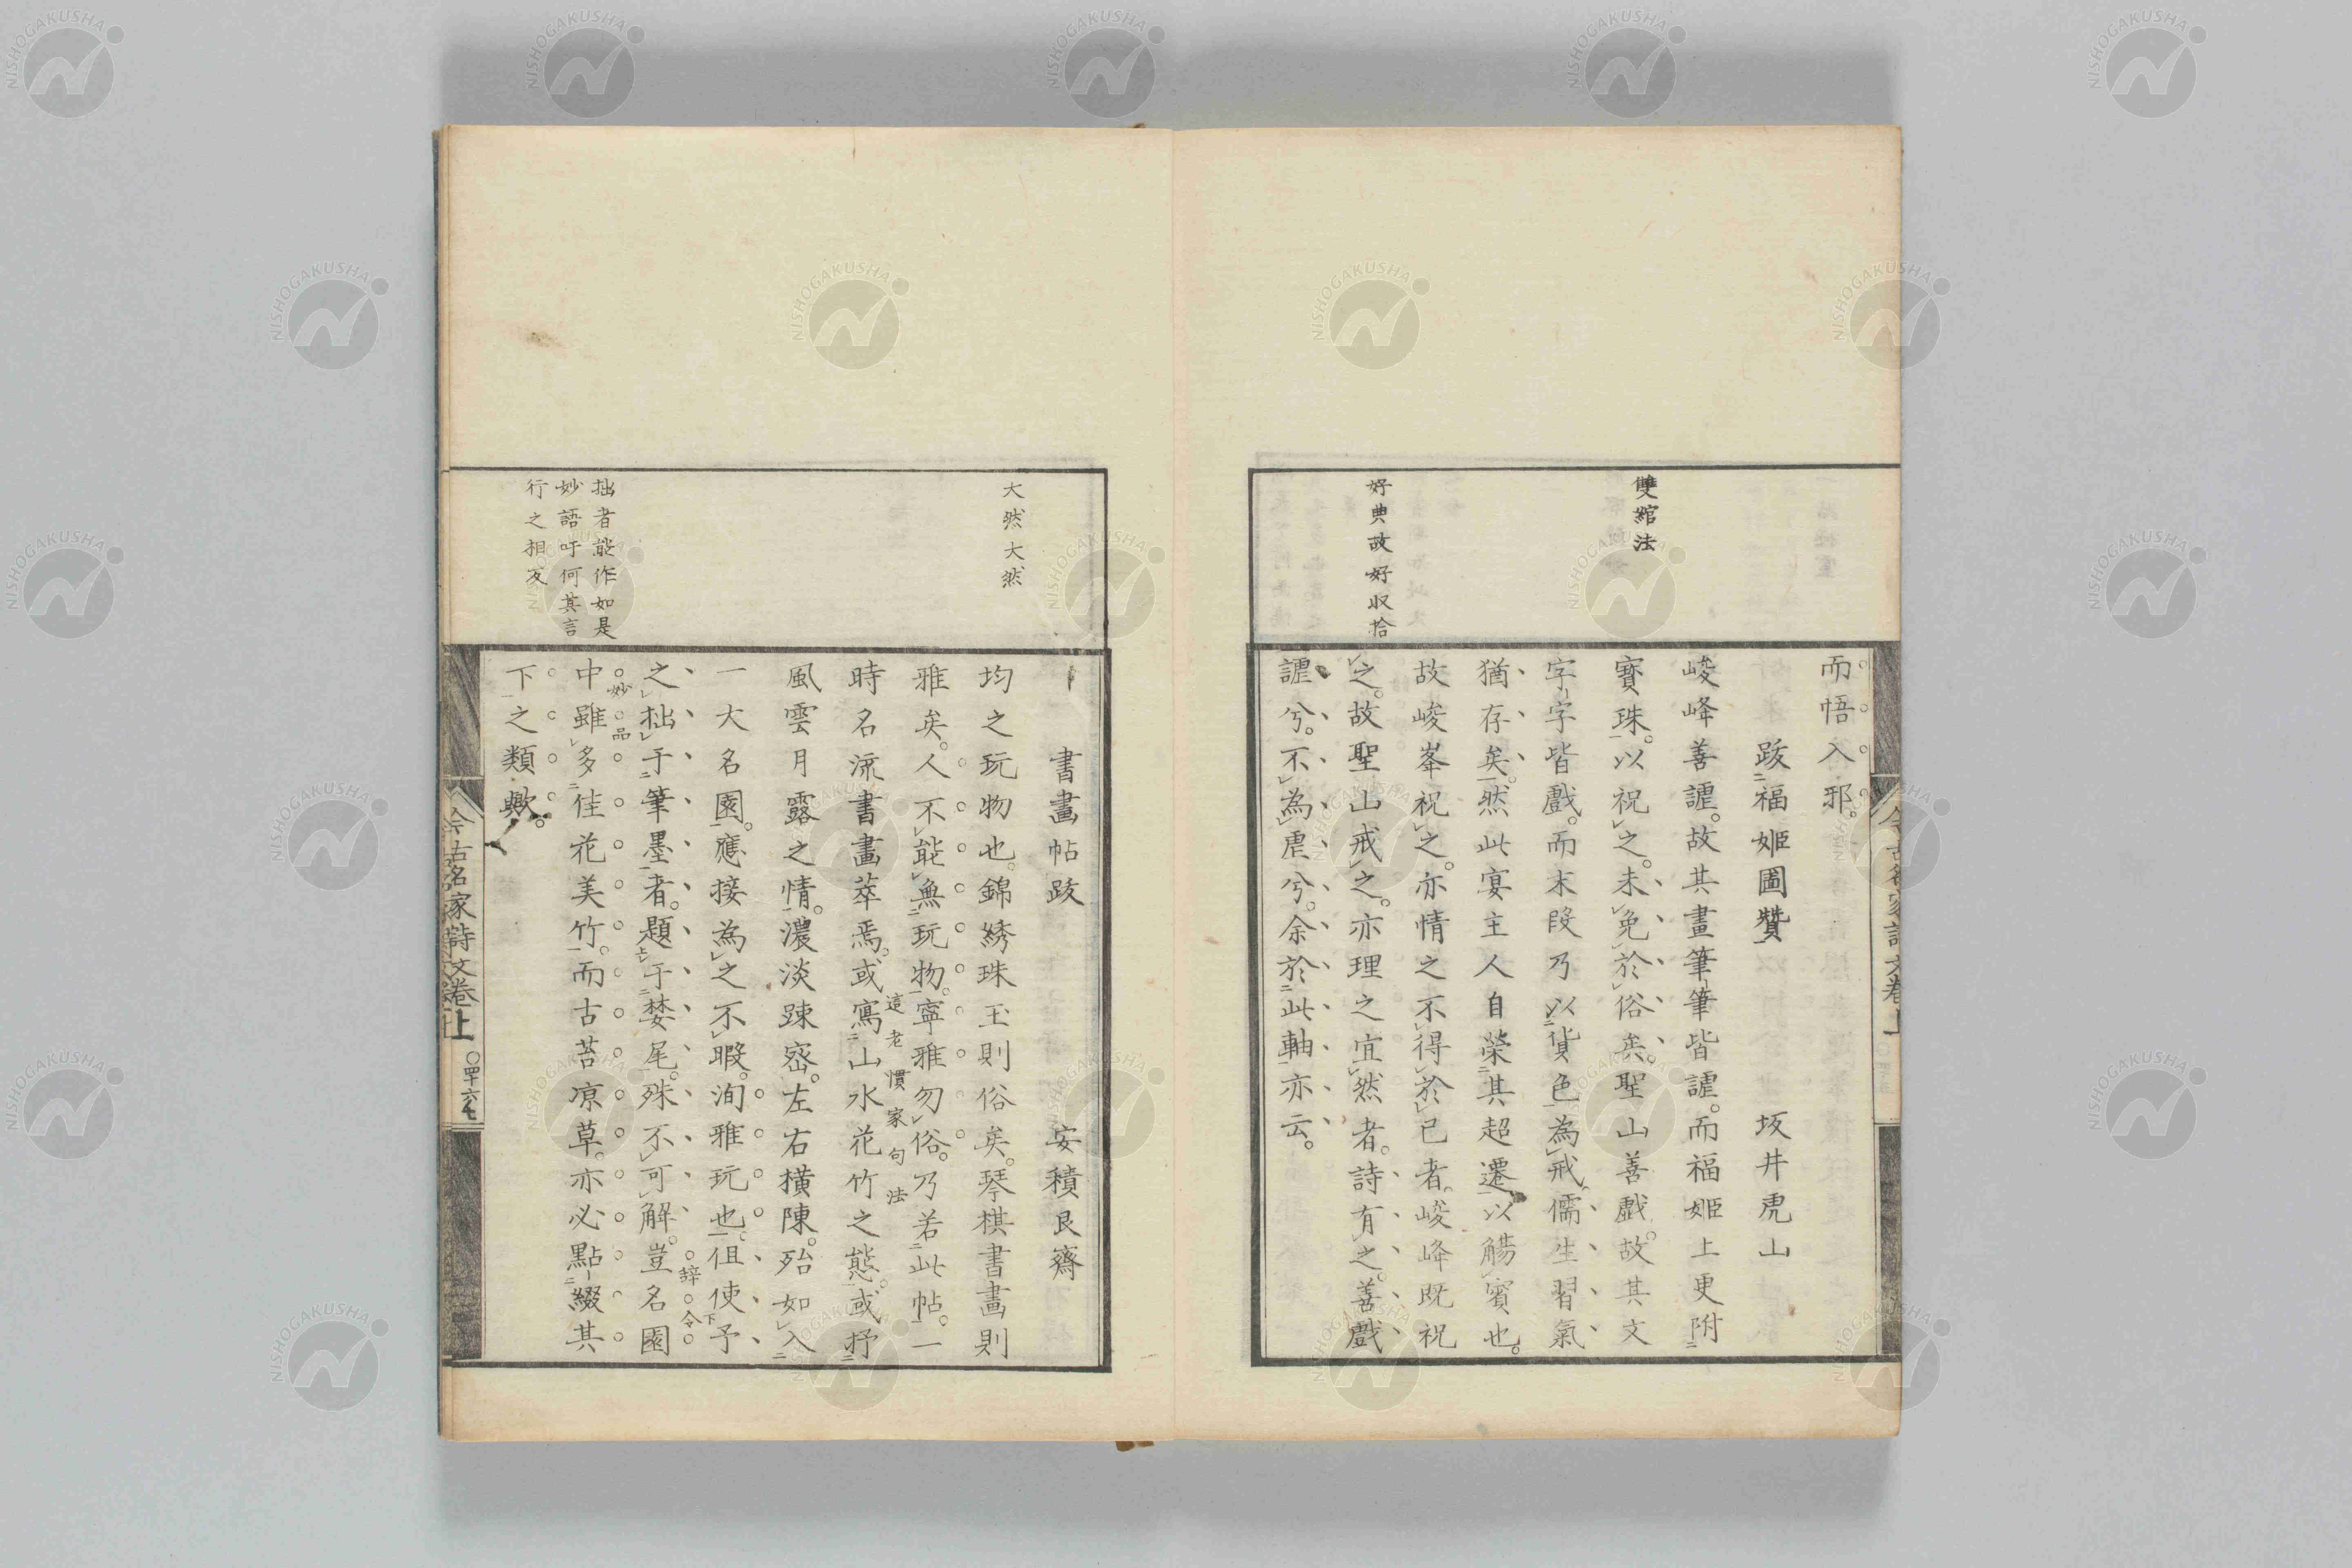 而悟入邪。
跋福姬圖贊 坂井虎山
峻峰善謔。故其畫筆筆皆謔。而福姬上更附
寶珠。以祝之。未免於俗矣。聖山善戲。故其文
字字皆戲。而末段乃以貨色為戒。儒生習氣
猶存矣。然此宴主人自榮其超遷。以觴賓也。
故峻峯祝之。亦情之不得於已者。峻峰既祝
之。故聖山戒之。亦理之宜然者。詩有之。善戲
謔兮。不為虐兮。余於此軸亦云。
雙綰法
好典故好収拾
書畫帖跋 安積艮齋
均之玩物也。錦綉珠玉則俗矣。琴棋書畫則
雅矣。人不能無玩物。寧雅勿俗。乃若此帖。一
時名流書畫萃焉。或寫山水花竹之態。或抒
這老慣家句法
風雲月露之情。濃淡踈密。左右橫陳。殆如入
一大名園。應接為之不暇。洵雅玩也。但使予
之拙于筆墨者。題于婪尾。殊不可解。豈名園
辞令
中雖多佳花美竹。而古苔凉草。亦必點綴其
妙品
下之類歟。
大然大然
拙者能作如是
妙語吁何其言
行之相反
今古名家詩文卷上
〇四十六七
NISHOGAKUSHA